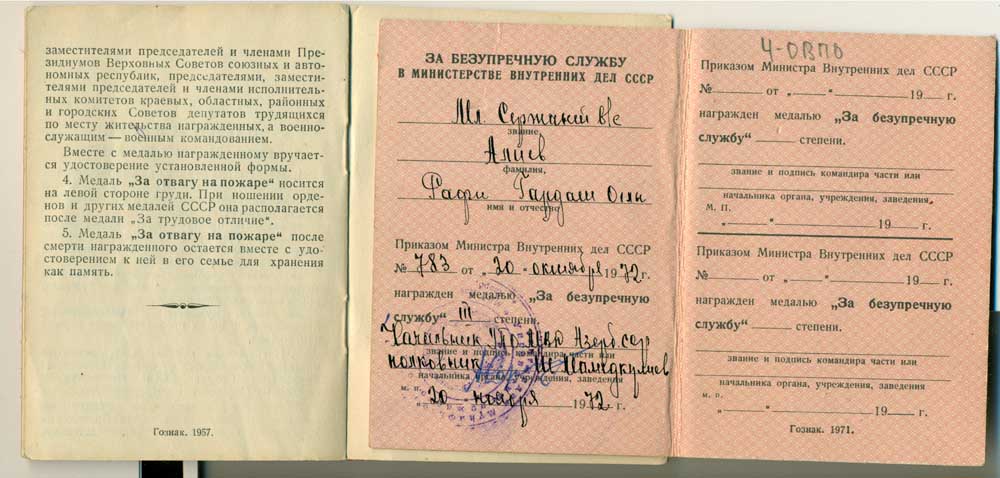 заместителями председателей и членами Пре-
зидиумов Верховных Советов союзных и авто-
номных республик, председателями, замести-
телями председателей и членами исполнитель-
ных комитетов краевых, областных, районных
и городских Советов депутатов трудящихся
по месту жительства награжденных, а военно-
служащим — военным командованием.
Вместе с медалью награжденному вручает-
ся удостоверение установленной формы.
4. Медаль „За отвагу на пожаре“ носится
на левой стороне груди. При ношении орде-
нов и других медалей СССР она располагается
после медали „За трудовое отличие“.
5. Медаль „За отвагу на пожаре“ после
смерти награжденного остается вместе с удо-
стоверением к ней в его семье для хранения
как память.
Гознак. 1957.
ЗА БЕЗУПРЕЧНУЮ СЛУЖБУ
В МИНИСТЕРСТВЕ ВНУТРЕННИХ ДЕЛ СССР
Мл. Сержант в/с
звание,
Алиев
фамилия,
Рафи Гардаш Оглы
имя и отчество
Приказом Министра Внутренних дел СССР
№ 783 от „20“ октября 1972 г.
награжден медалью „За безупречную
службу“ III степени.
Начальник УПО МВД Азерб. сср
звание и подпись командира части или
полковник Мамедкулиев
начальника органа, учреждения, заведения
м. п.
„20“ ноября 1972 г.
4-ОВПО
Приказом Министра Внутренних дел СССР
№ от „ “ 19 г.
награжден медалью „За безупречную
службу“ степени.
звание и подпись командира части или
начальника органа, учреждения, заведения
М. П.
„ “ 19 г.
Приказом Министра Внутренних дел СССР
№ от „ “ 19 г.
награжден медалью „За безупречную
службу“ степени.
звание и подпись командира части или
начальника органа, учреждения, заведения
м. п.
„ “ 19 г.
Гознак. 1971.